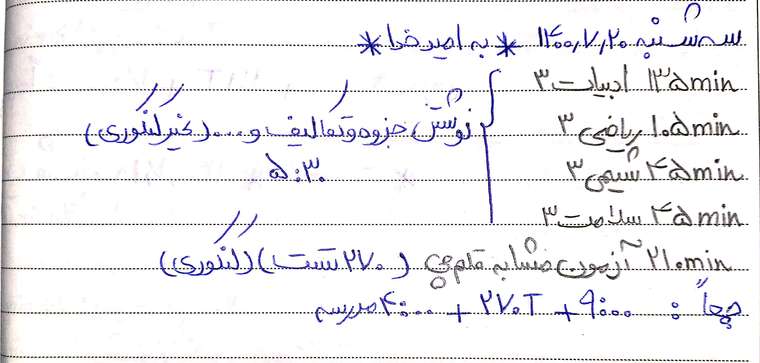 سه شنبه ۱۴۰۰,۷,۲۰ * به امید خدا *
۱۳۵min ادبیات ۳
۱۰۵min ریاضی ۳ نوشتن جزوه و تکالیف و... (غیرکنکوری)
۴۵min شیمی ۳ ۵:۳۰
۴۵min سلامت ۳
۲۱۰min آزمون مشابه قلم چی (۲۷۰ تست) (کنکوری)
جمعاً : ۹:۰۰ + ۲۷۰T + ۴:۰۰ مدرسه